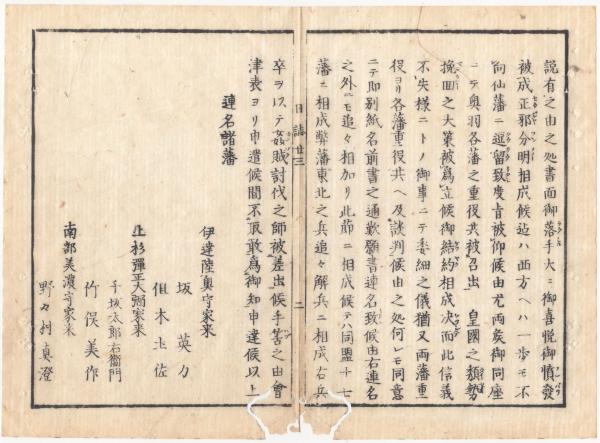 説有之由之処書面御落手大ニ御喜悦御憤發
被成正邪分明相成候迄ハ西方ヘハ一歩モ不
向仙藩ニ逗留致度旨被仰候由尤両矦御同座
ニテ奥羽各藩之重役共被召出 皇國之頽勢
挽回之大策被為立候御結約相成决而此信義
不失様ニトノ御事ニテ委細之儀猶又両藩重
役ヨリ各藩重役共ヘ及談判候由之処何レモ同意
ニテ即別紙名前書之通歎願書連名致候由右連名
之外ニモ追々相加リ此節ニ相成候テハ同盟十七
藩ニ相成弊藩東北之兵追々解兵ニ相成右兵
日誌廿三
二
卒ヲ以テ姦賊討伐之師被差出候手筈之由會
津表ヨリ申遣候間不取敢為御知申達候以上
連名諸藩
伊達陸奥守家来
坂英力
但木土佐
上杉彈正大弼家来
千坂太郎右衛門
竹俣美作
南部美濃守家来
野々村真澄